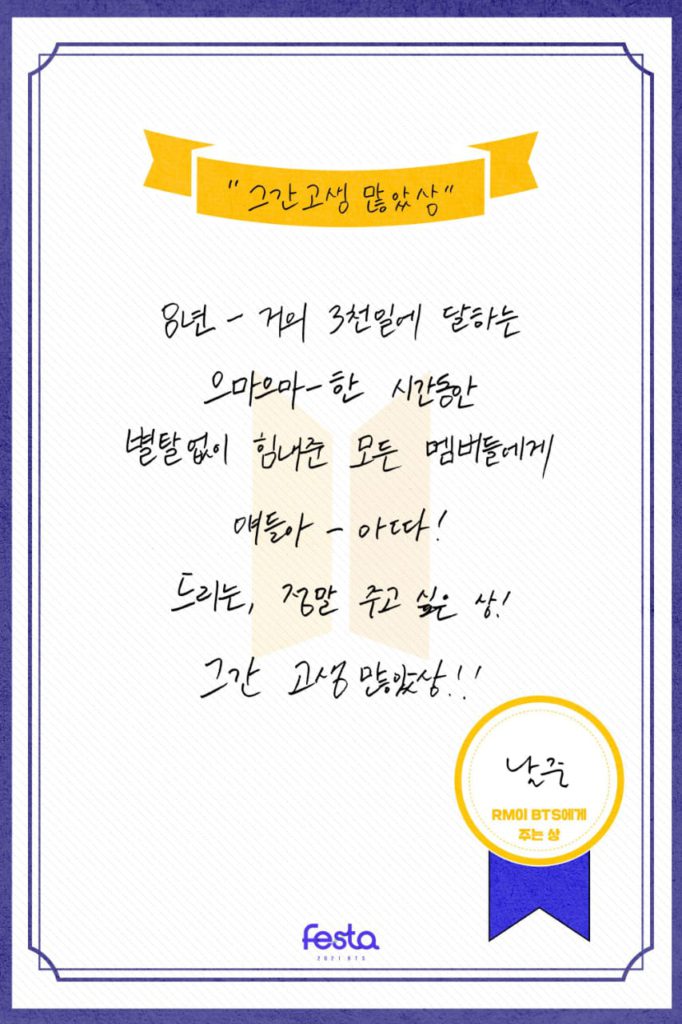 "그간고생 많았상"
8년 - 거의 3천일에 달하는
으마으마-한 시간동안
별탈없이 힘내준 모든 멤버들에게
얘들아 - 아따!
드리는, 정말 주고 싶은 상!
그간 고생 많았상!!
남준
RM이 BTS에게
주는 상
festa
2021 BTS